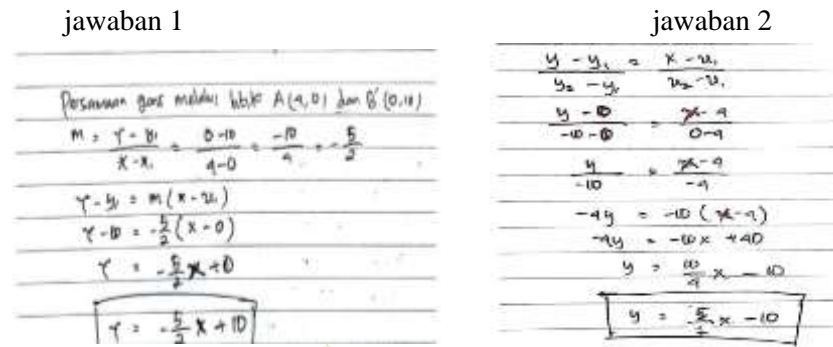 jawaban 1
Persamaan garis melalui titik A(4,0) dan B'(0,10)
m = y - y₁ / x - x₁ = 0-10 / 4-0 = -10 / 4 = -5/2
y - y₁ = m(x - x₁)
y - 10 = -5/2 (x - 0)
y = -5/2 x + 10
y = -5/2 x + 10
jawaban 2
y - y₁ / y₂ - y₁ = x - x₁ / x₂ - x₁
y - 0 / -10 - 0 = x - 4 / 0-4
y / -10 = x - 4 / -4
-4y = -10 (x-4)
-4y = -10x + 40
y = 10/4 x - 10